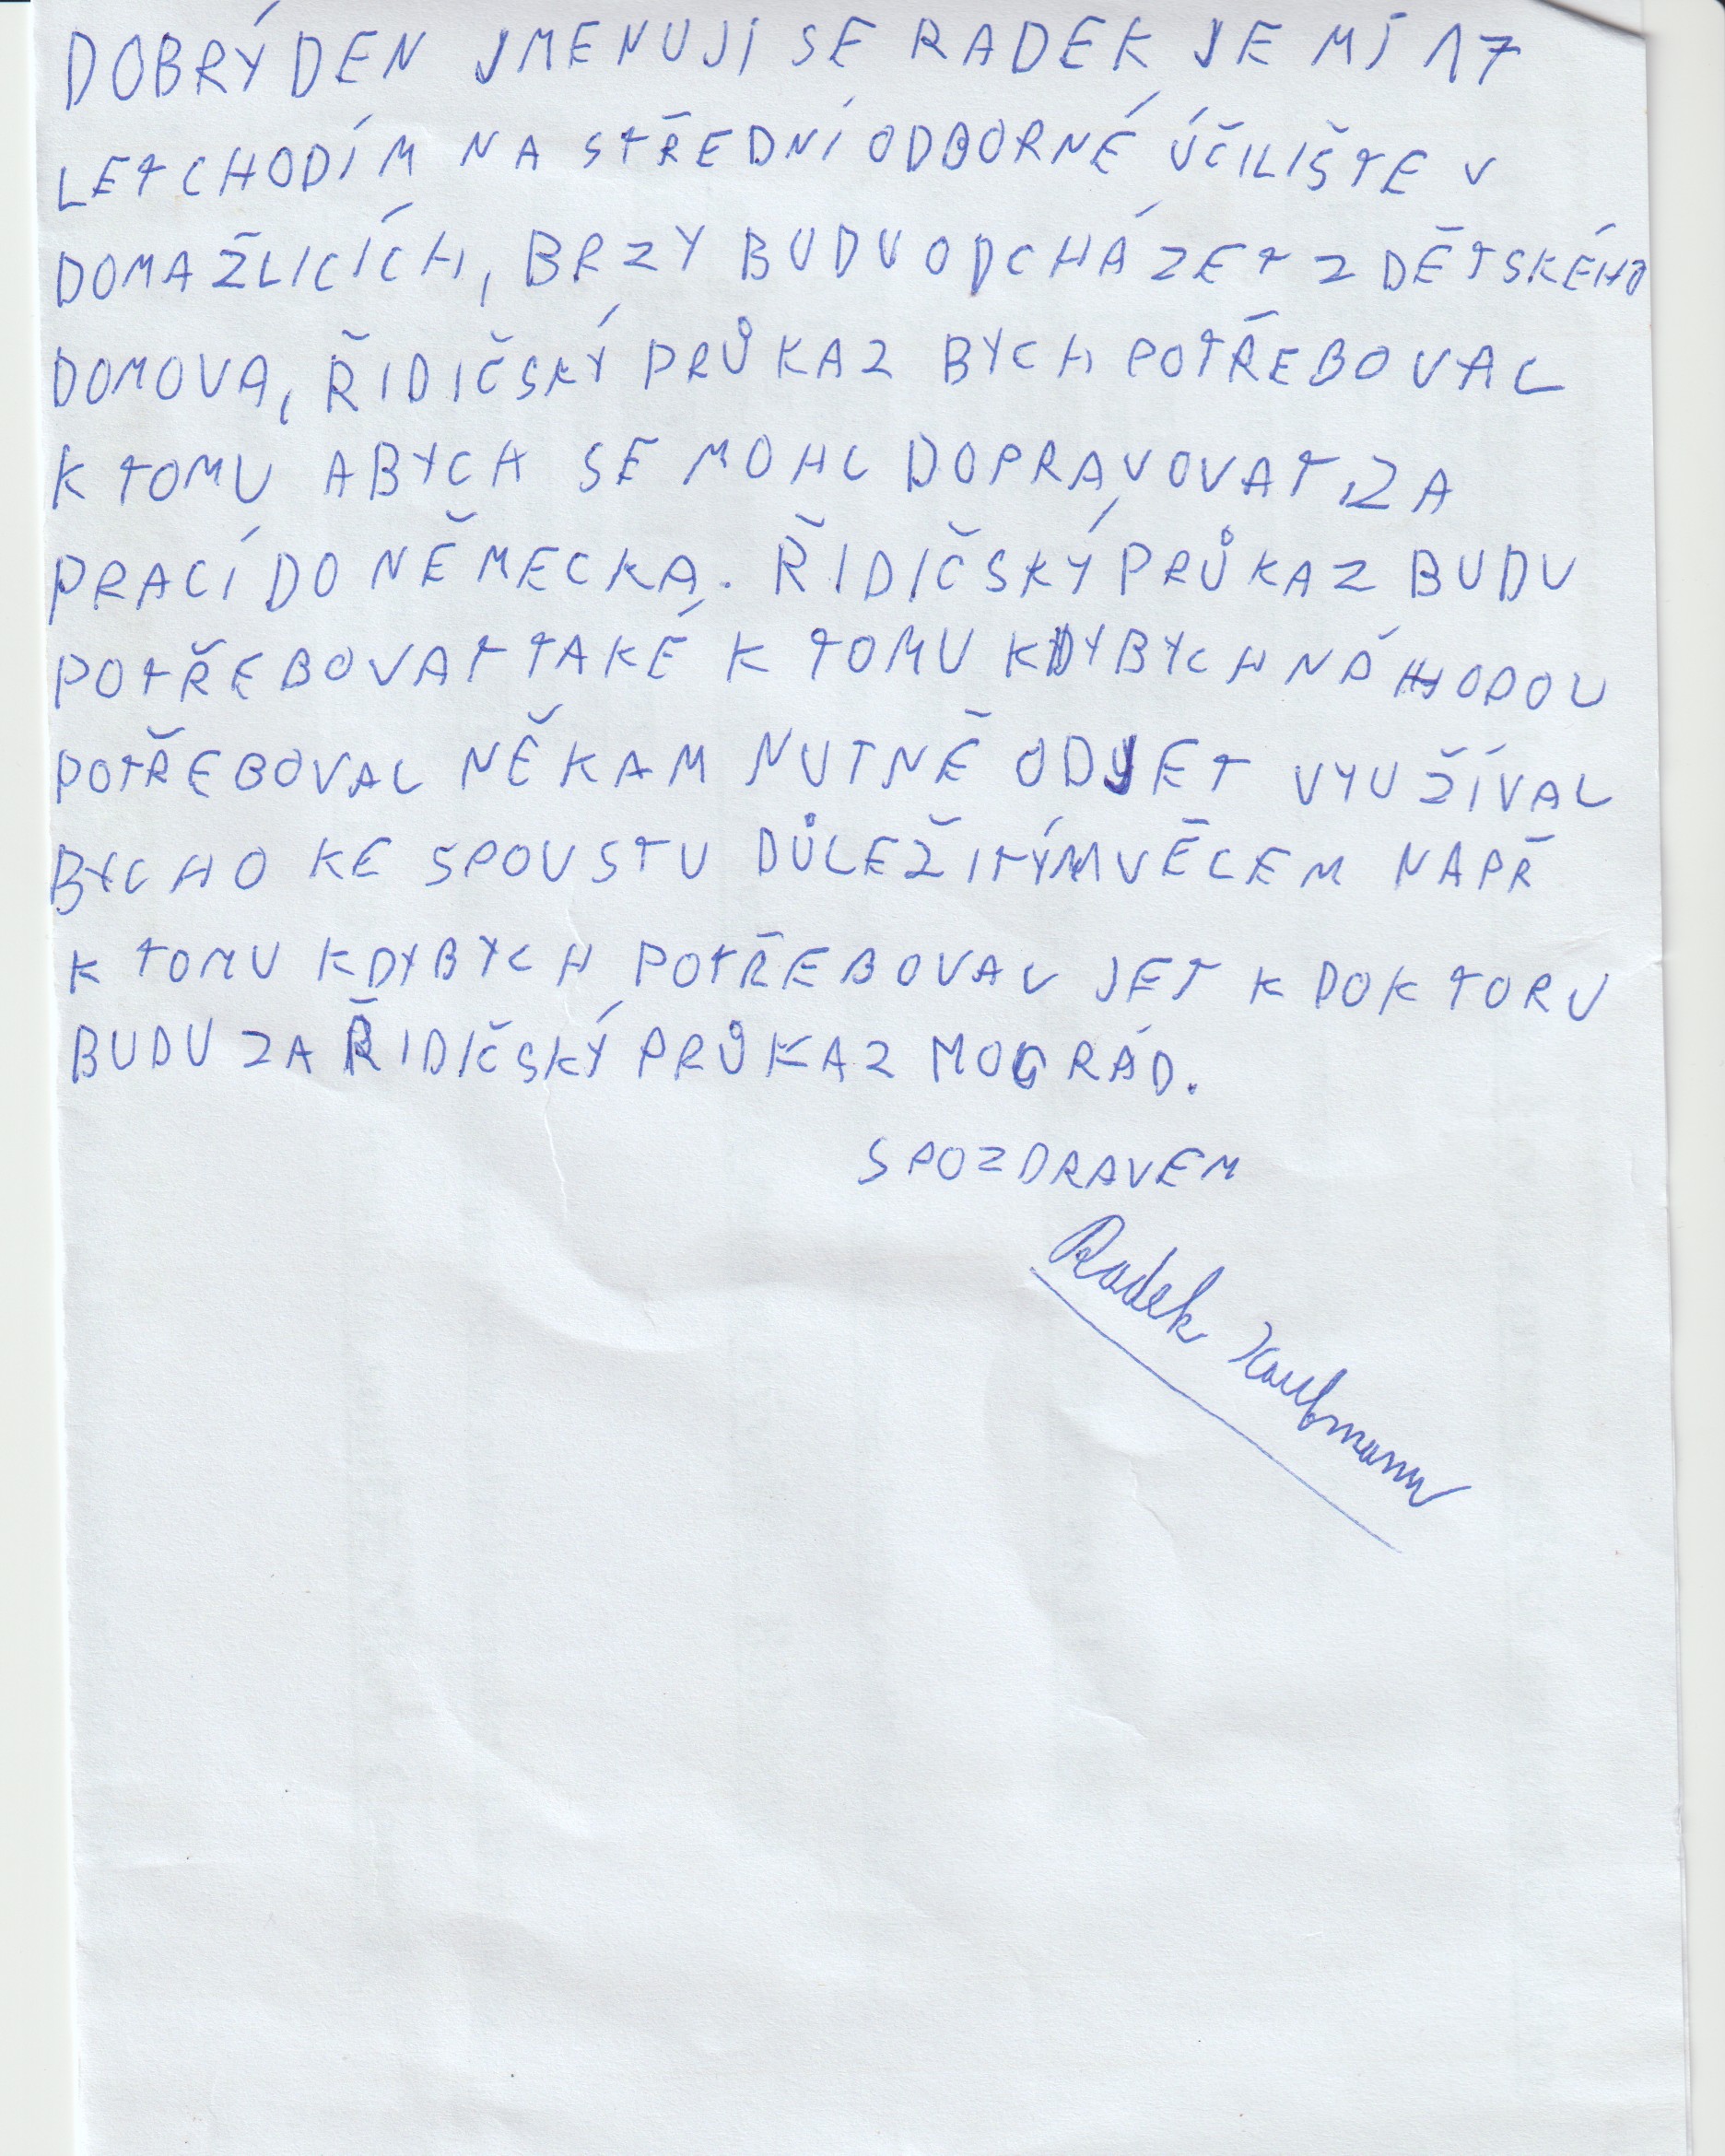 DOBRÝ DEN JMENUJI SE RADEK JE MI 17
LET CHODÍM NA STŘEDNÍ ODBORNÉ ÚČILIŠTE V
DOMAŽLICÍCH, BRZY BUDU ODCHÁZET Z DĚTSKÉHO
DOMOVA, ŘIDIČSKÝ PRŮKAZ BYCH POTŘEBOVAL
K TOMU ABYCH SE MOHL DOPRAVOVAT, ZA
PRACÍ DO NĚMECKA. ŘIDIČSKÝ PRŮKAZ BUDU
POTŘEBOVAT TAKÉ K TOMU KDYBYCH NÁHODOU
POTŘEBOVAL NĚKAM NUTNĚ ODJET VYUŽÍVAL
BYCH HO KE SPOUSTU DŮLEŽITÝM VĚCEM NAPŘ
K TOMU KDYBYCH POTŘEBOVAL JET K DOKTORU
BUDU ZA ŘIDIČSKÝ PRŮKAZ MOC RÁD.
S POZDRAVEM
Radek Kaufmann